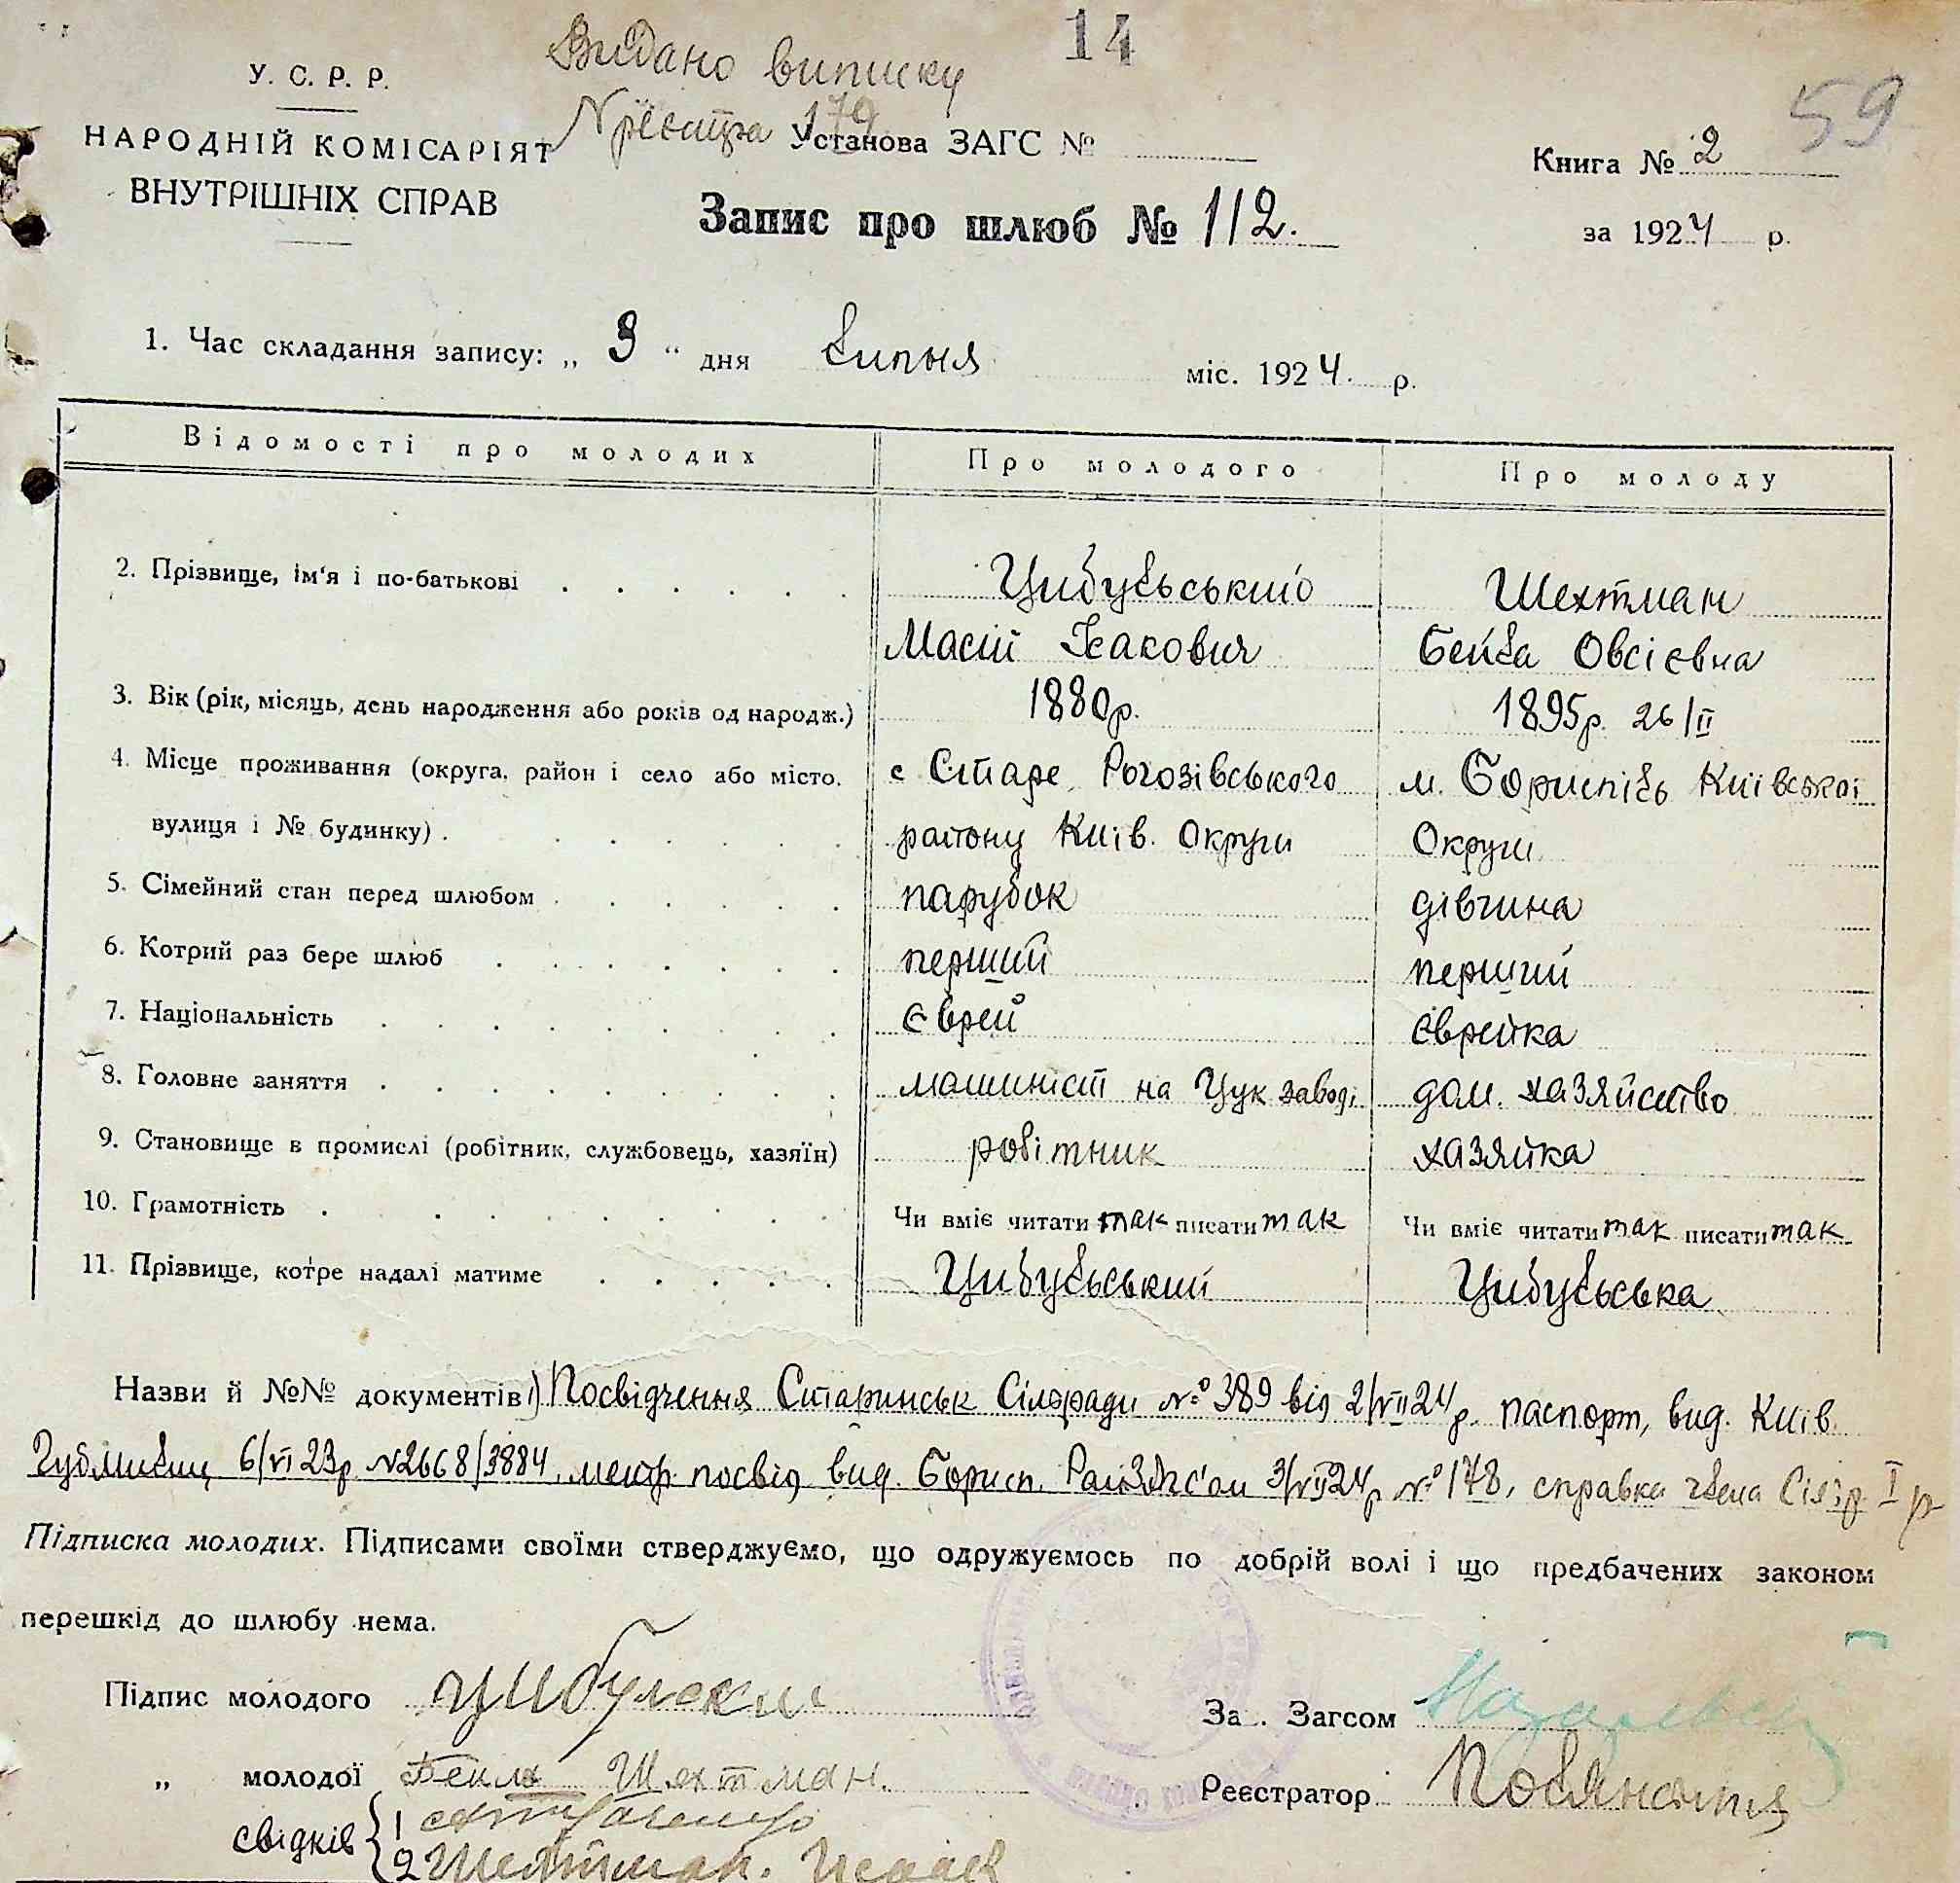 14
Видано виписку
№ реєстра 179
59
У. С. Р. Р.
НАРОДНІЙ КОМІСАРІЯТ
ВНУТРІШНІХ СПРАВ
Установа ЗАГС №
Книга № 2
за 1924 р.
Запис про шлюб № 112.
1. Час складання запису: „ 3 “ дня липня міс. 1924. р.
Відомості про молодих Про молодого Про молоду
2. Прізвище, ім'я і по-батькові Цибульський Шехтман
Масій Ісакович Бейла Овсієвна
3. Вік (рік, місяць, день народження або років од народж.) 1880р. 1895р. 26/II
4. Місце проживання (округа, район і село або місто, с Старе, Рогозівського м. Бориспіль Київської
вулиця і № будинку) району Київ. Округи Округи
5. Сімейний стан перед шлюбом парубок дівчина
6. Котрий раз бере шлюб перший перший
7. Національність Єврей Єврейка
8. Головне заняття машиніст на Цук заводі дом. хазяйство
9. Становище в промислі (робітник, службовець, хазяїн) робітник хазяйка
10. Грамотність Чи вміє читати так писати так Чи вміє читати так писати так
11. Прізвище, котре надалі матиме Цибульський Цибульська
Назви й №№ документів 1) Посвідчення Старинськ Сільради № 389 від 2/VII 24 р. паспорт, вид. Київ.
6/VI 23р №2668/3884, посвід вид. Борисп. 3/VII 24 р № 178, справка члена
Підписка молодих. Підписами своїми стверджуємо, що одружуємось по добрій волі і що предбачених законом
перешкід до шлюбу нема.
Підпис молодого Цибулски
За Загсом
„ молодої Бейла Шехтман.
Реєстратор
свідків 1
2 Шехтман.